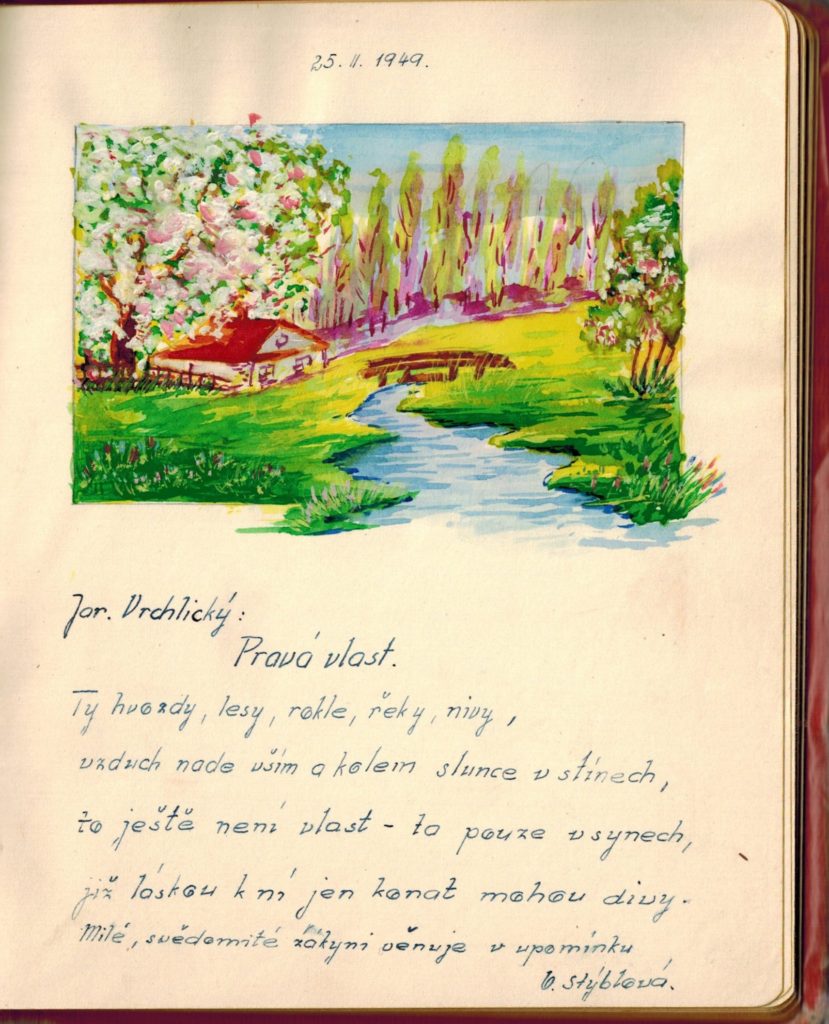 25. II. 1949.
Jar. Vrchlický:
Pravá vlast.
Ty hvozdy, lesy, rokle, řeky, nivy,
vzduch nade vším a kolem slunce v stínech,
to ještě není vlast - ta pouze v synech,
již láskou k ní jen konat mohou divy.
Milé, svědomité žákyni věnuje v upomínku
V. Stýblová.